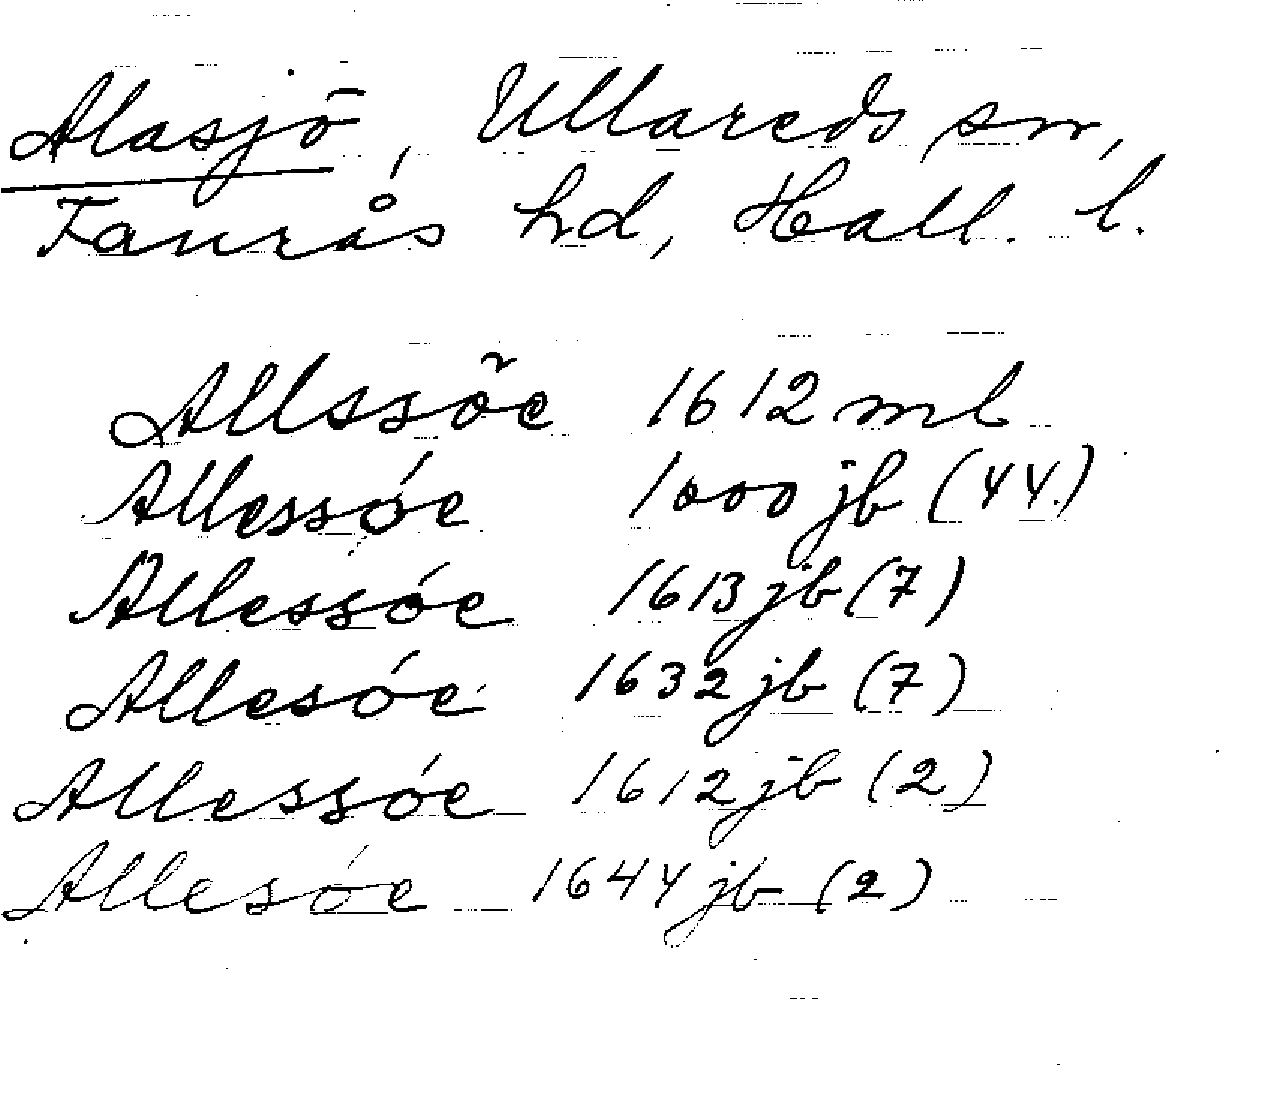 Alasjö, Ullareds sn,
Faurås hd, Hall. l.
Allssöe 1612 ml
Allessóe 1600 jb (44)
Allessóe 1613 jb (7)
Allesóe 1632 jb (7)
Allessóe 1612 jb (2)
Allesóe 1644 jb (2)